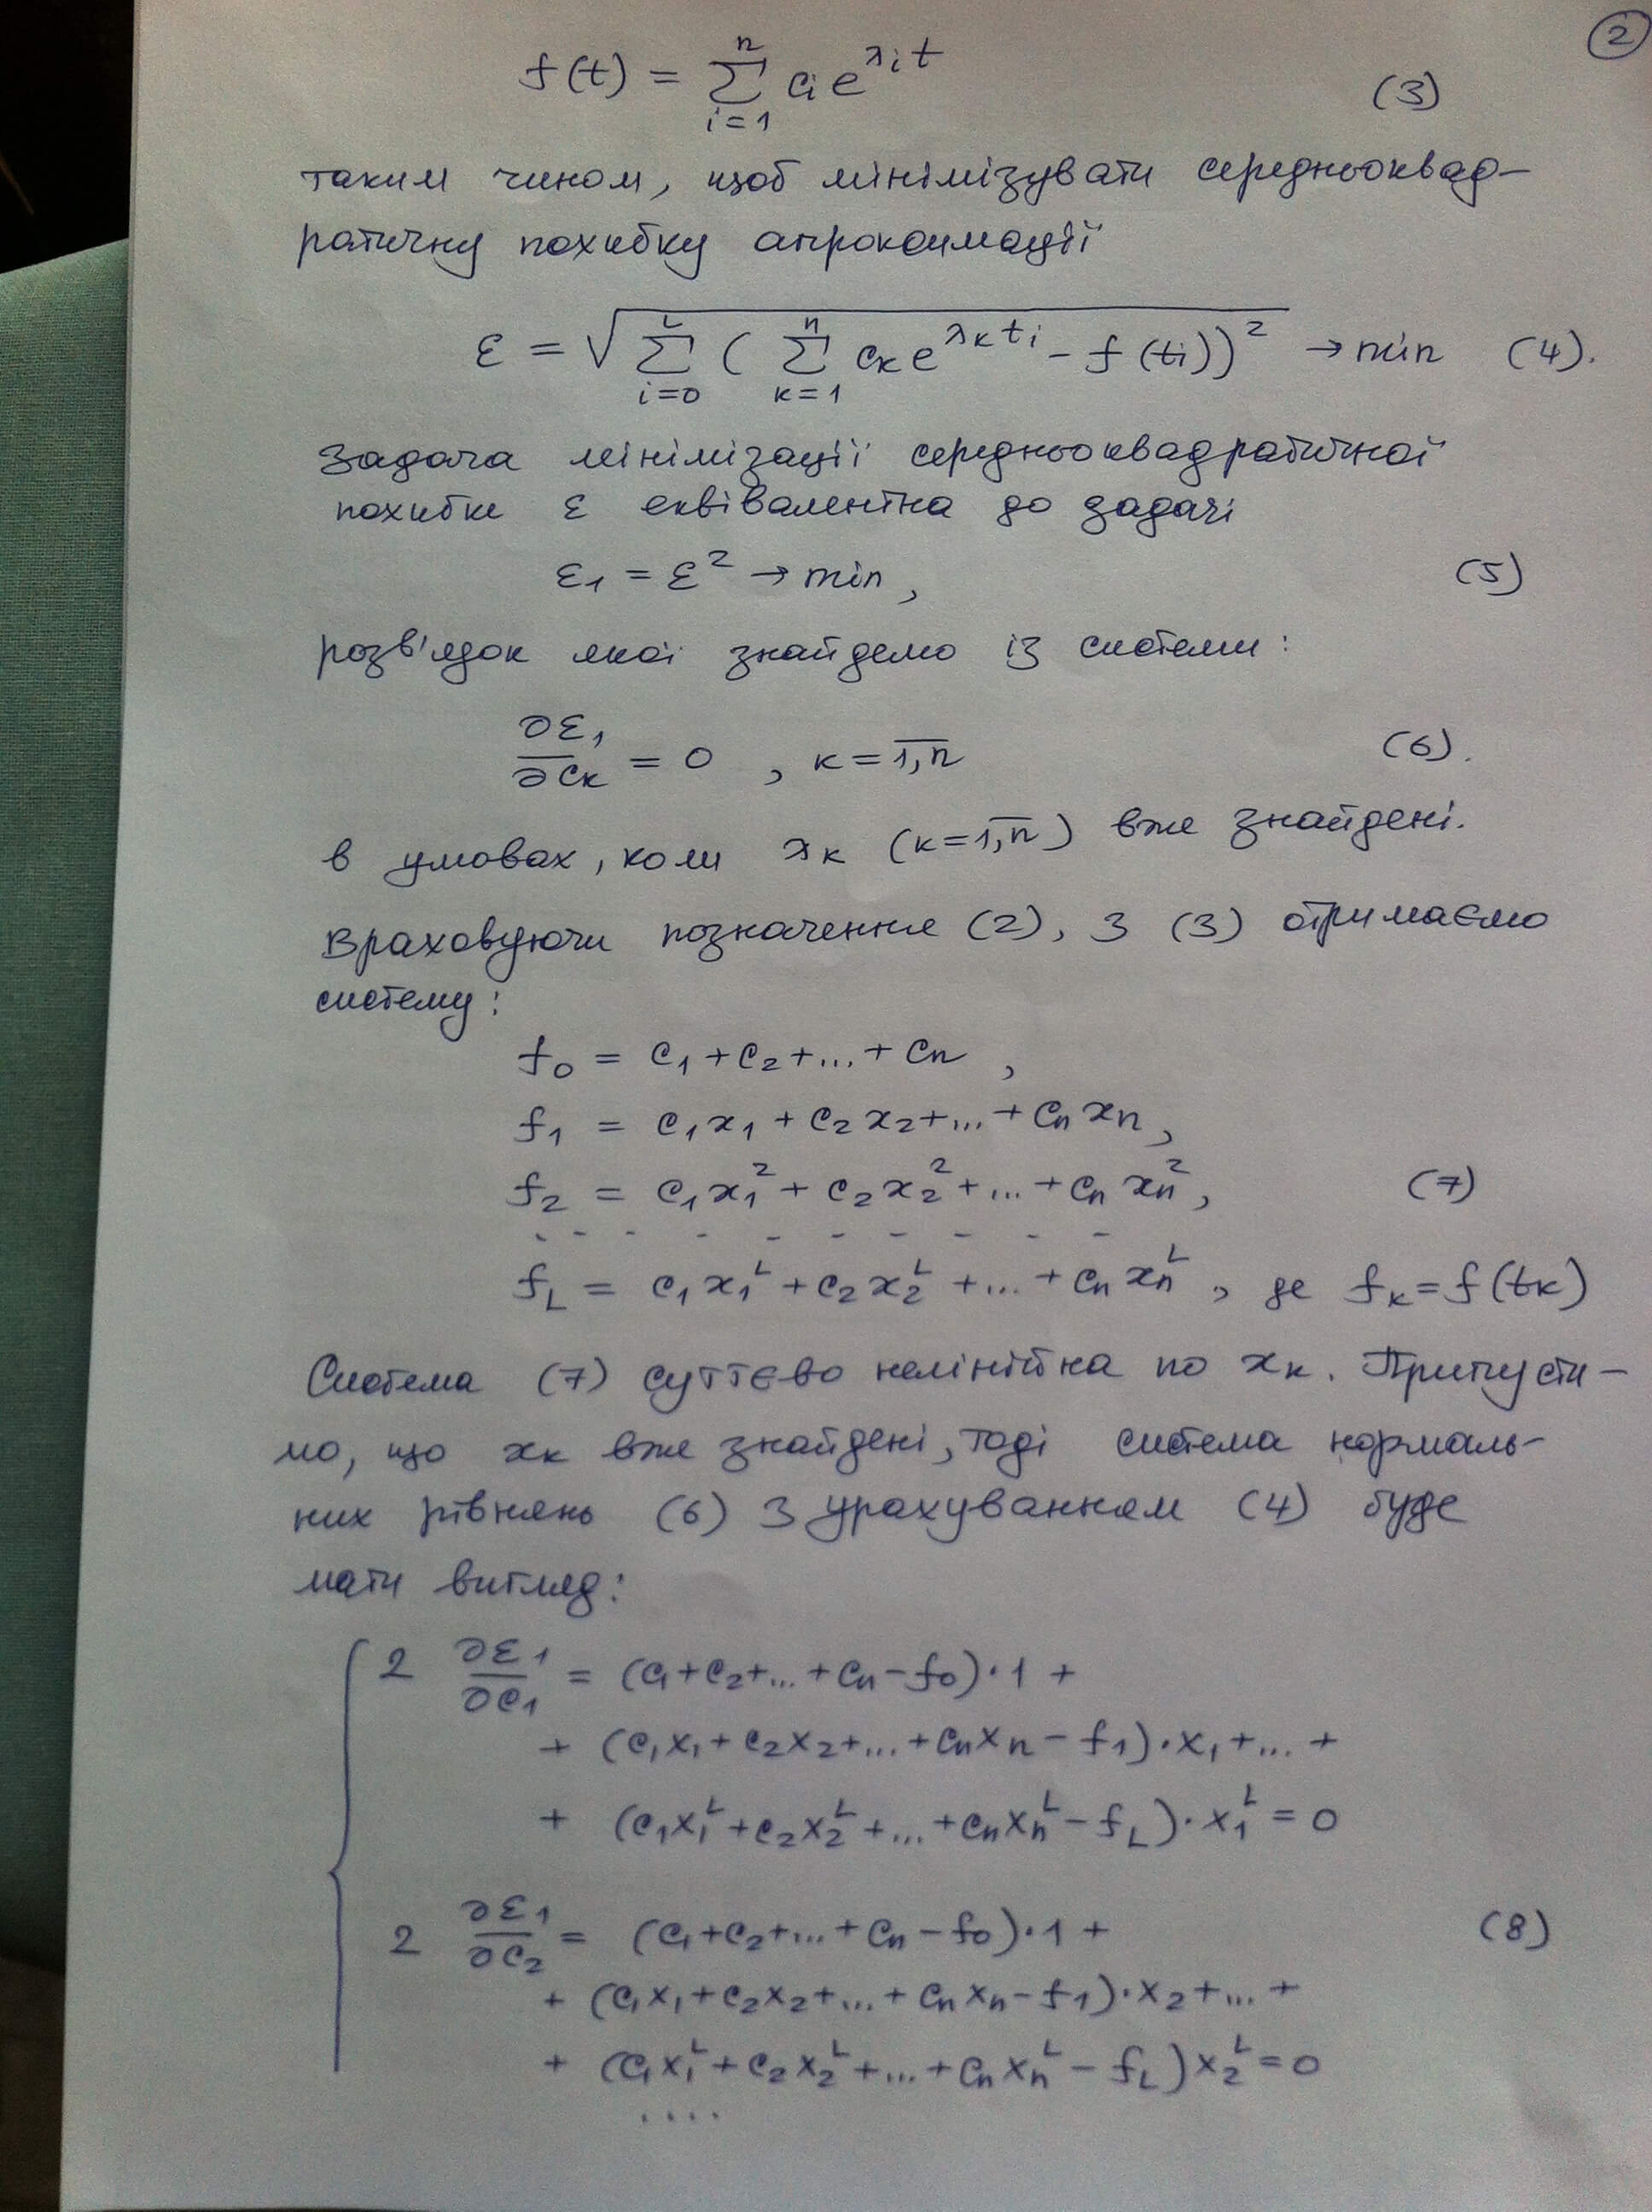 2
f(t) = ∑_{i=1}^{n} c_i e^{λ_i t} (3)
таким чином, щоб мінімізувати середньоквад-
ратичну похибку апроксимації
ε = √(∑_{i=0}^{L} (∑_{k=1}^{n} c_k e^{λ_k t_i} - f(t_i))²) → min (4).
Задача мінімізації середньоквадратичної
похибки ε еквівалентна до задачі
ε₁ = ε² → min, (5)
розв'язок якої знайдемо із системи:
∂ε₁/∂c_k = 0 , k = \overline{1,n} (6).
в умовах, коли λ_k (k=\overline{1,n}) вже знайдені.
Враховуючи позначення (2), з (3) отримаємо
систему:
f₀ = c₁ + c₂ + ... + c_n ,
f₁ = c₁x₁ + c₂x₂ + ... + c_n x_n ,
f₂ = c₁x₁² + c₂x₂² + ... + c_n x_n² , (7)
- - - - - - - - - -
f_L = c₁x₁^L + c₂x₂^L + ... + c_n x_n^L , де f_k = f(t_k)
Система (7) суттєво нелінійна по x_k. Припусти-
мо, що x_k вже знайдені, тоді система нормаль-
них рівнянь (6) з урахуванням (4) буде
мати вигляд:
2 ∂ε₁/∂c₁ = (c₁ + c₂ + ... + c_n - f₀)·1 +
+ (c₁x₁ + c₂x₂ + ... + c_n x_n - f₁)·x₁ + ... +
+ (c₁x₁^L + c₂x₂^L + ... + c_n x_n^L - f_L)·x₁^L = 0
2 ∂ε₁/∂c₂ = (c₁ + c₂ + ... + c_n - f₀)·1 + (8)
+ (c₁x₁ + c₂x₂ + ... + c_n x_n - f₁)·x₂ + ... +
+ (c₁x₁^L + c₂x₂^L + ... + c_n x_n^L - f_L)x₂^L = 0
....